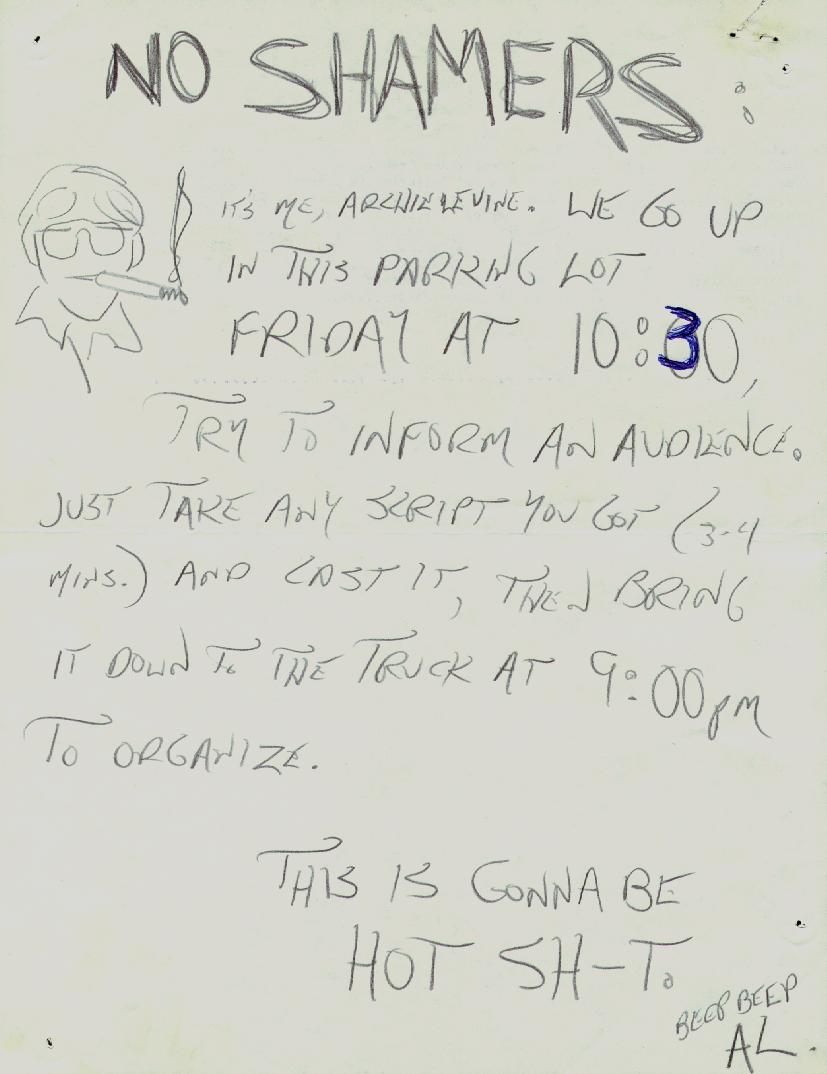 NO SHAMERS:
IT'S ME, ARCHIE LEVINE. WE GO UP
IN THIS PARKING LOT
FRIDAY AT 10:30,
TRY TO INFORM AN AUDIENCE.
JUST TAKE ANY SCRIPT YOU GOT (3-4
MINS.) AND CAST IT, THEN BRING
IT DOWN TO THE TRUCK AT 9:00pm
TO ORGANIZE.
THIS IS GONNA BE
HOT SH-T.
BEEP BEEP
AL.